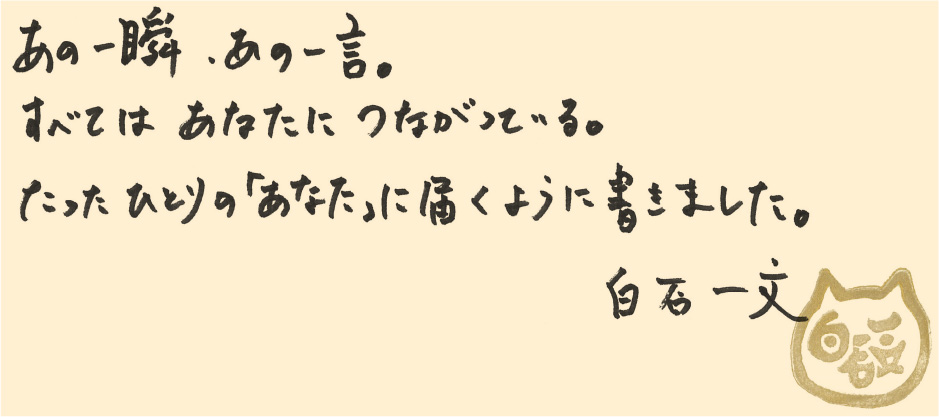 あの一瞬、あの一言。
すべては あなたに つながっている。
たった ひとりの「あなた」に届くように書きました。
白石一文
白石一文